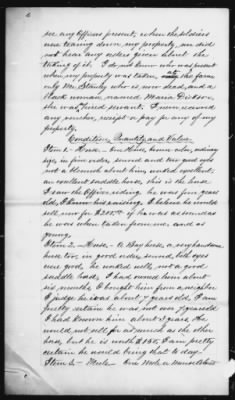 6
see any Officers present, when the soldiers
was tearing down, my property, nor did
not hear any orders given about the
taking of it. I do not know who was present
when my property was taken, at the farm
only Mr. Stanley who is, now dead, and a
black woman named Maria Dickson,
she was hired servant. I never received
any voucher, receipt or pay for any of my
property.
Condition, Quantity and Value.
Item 1. Horse. One Horse, color, ordinary
size, in fine order, sound and two good eyes
not a blemish about him worked excellent,
an excellent saddle horse, this is the horse
I saw the Officer, riding. he was five years
old, I knew his raising. I believe he would
sell, now for $200.00 if he was as sound as
he was when taken from me, and as
young.
Item 2. Horse. A Bay horse, a very handsome
horse too, in good order sound, both eyes
were good, he worked well, not a good
saddle horse, I had owned him about
six months, I bought him from a neighbor
I judge he was about 7 years old, I am
pretty certain he was not over 7 years old
I had known him about 3 years. He
would not sell for as much as the other
horse, but he is worth $155, I am pretty
certain he would bring that to day.
Item 3. Mule. One mule a